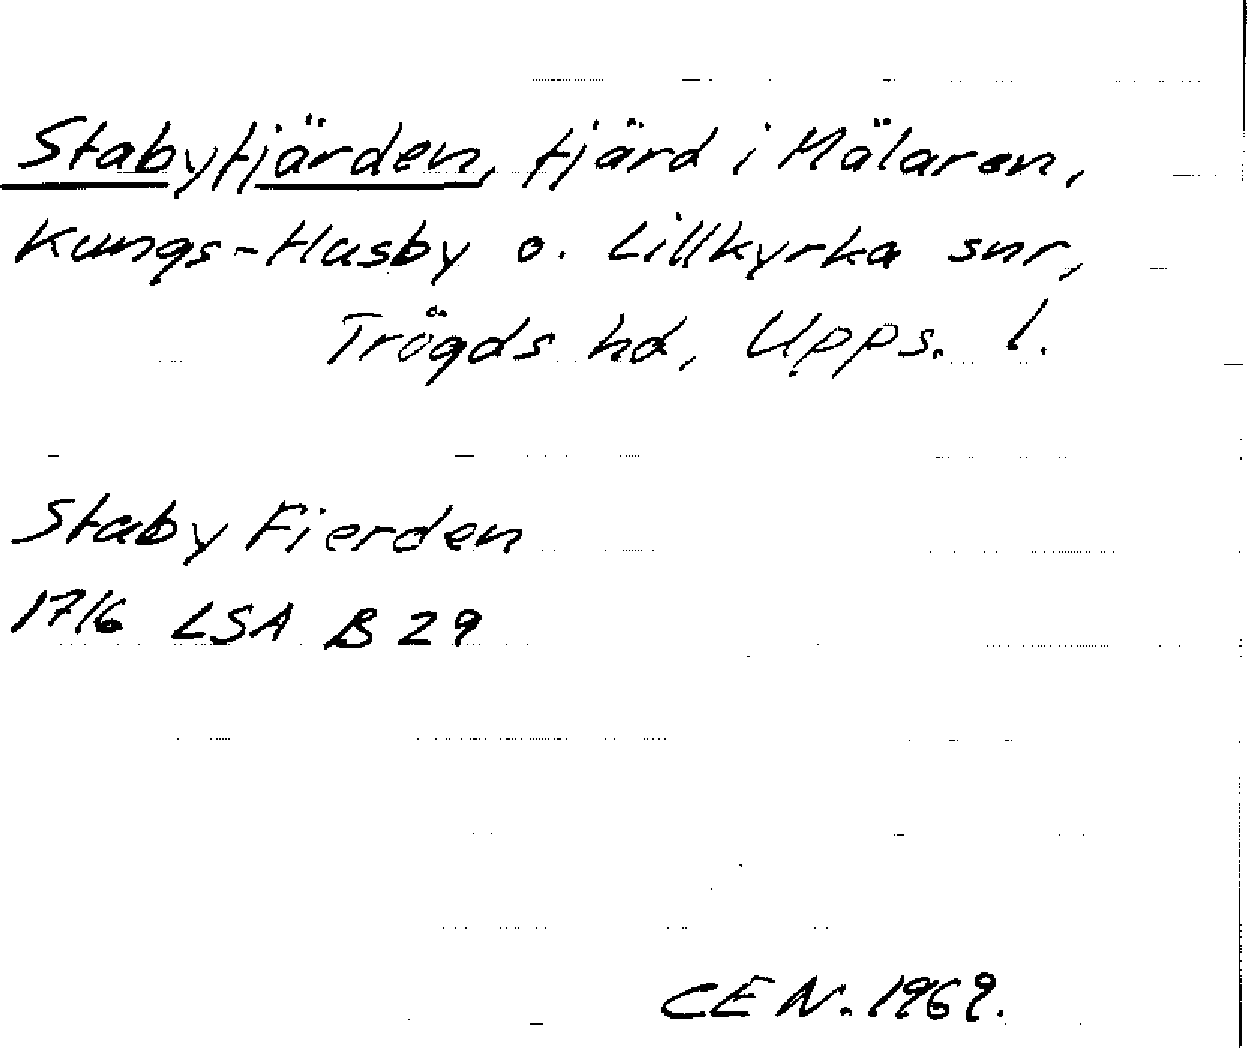 Stabyfjärden, fjärd i Mälaren,
Kungs-Husby o. Lillkyrka snr,
Trögds hd, Upps. l.
Staby Fierden
1716 LSA B 29
CEN. 1969.